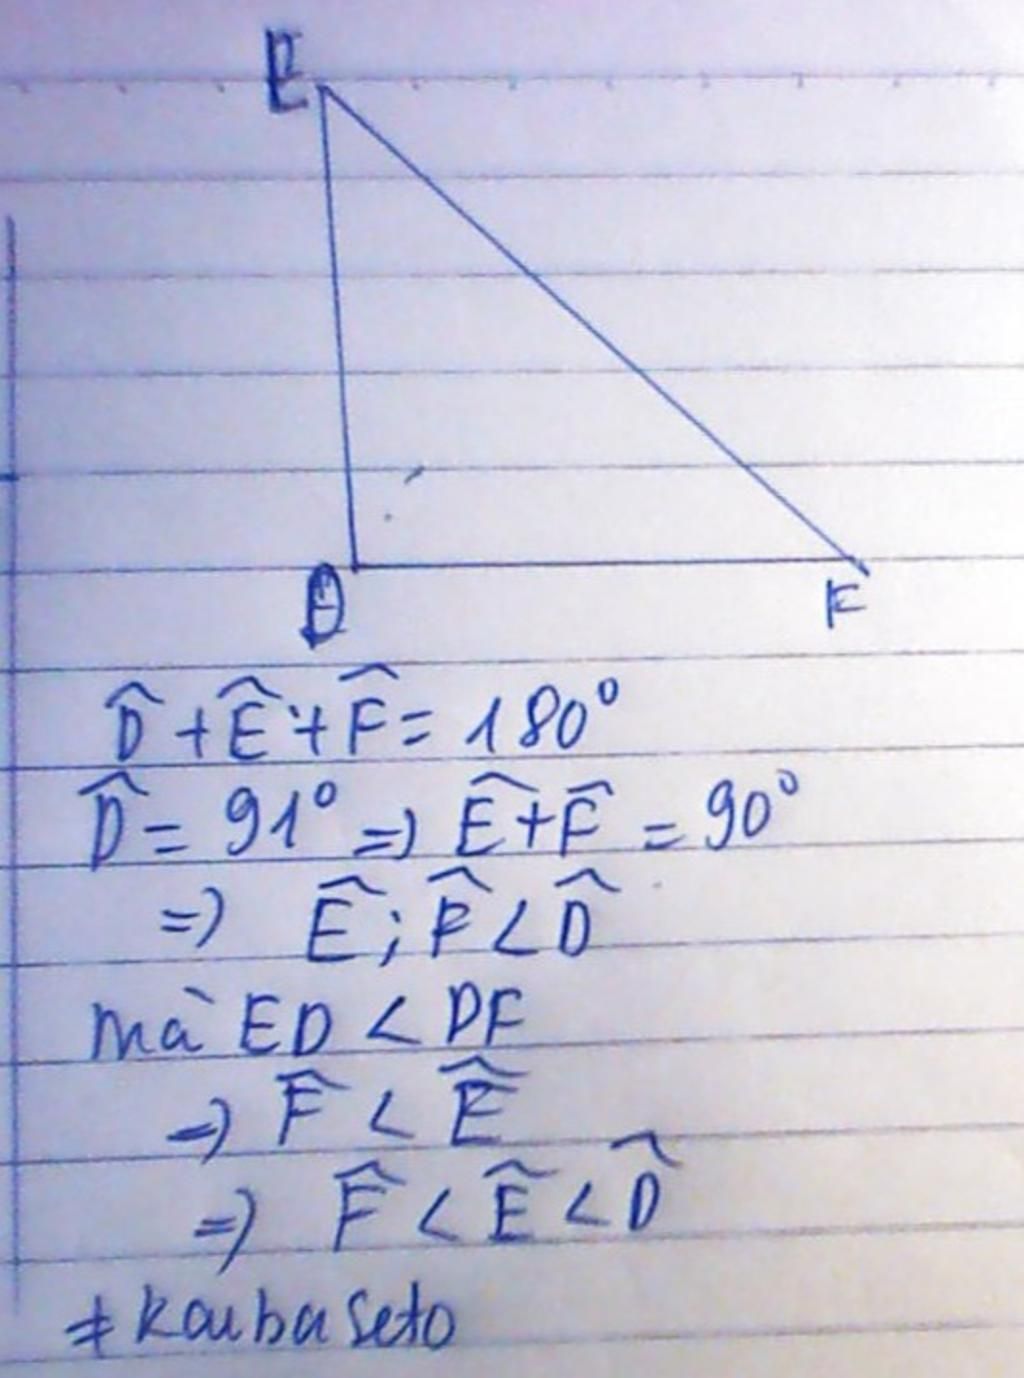 E
D
F
D̂ + Ê + F̂ = 180°
D̂ = 91° => Ê + F̂ = 90°
=> Ê ; F̂ < D̂
mà ED < DF
=> F̂ < Ê
=> F̂ < Ê < D̂
# Koubaseto